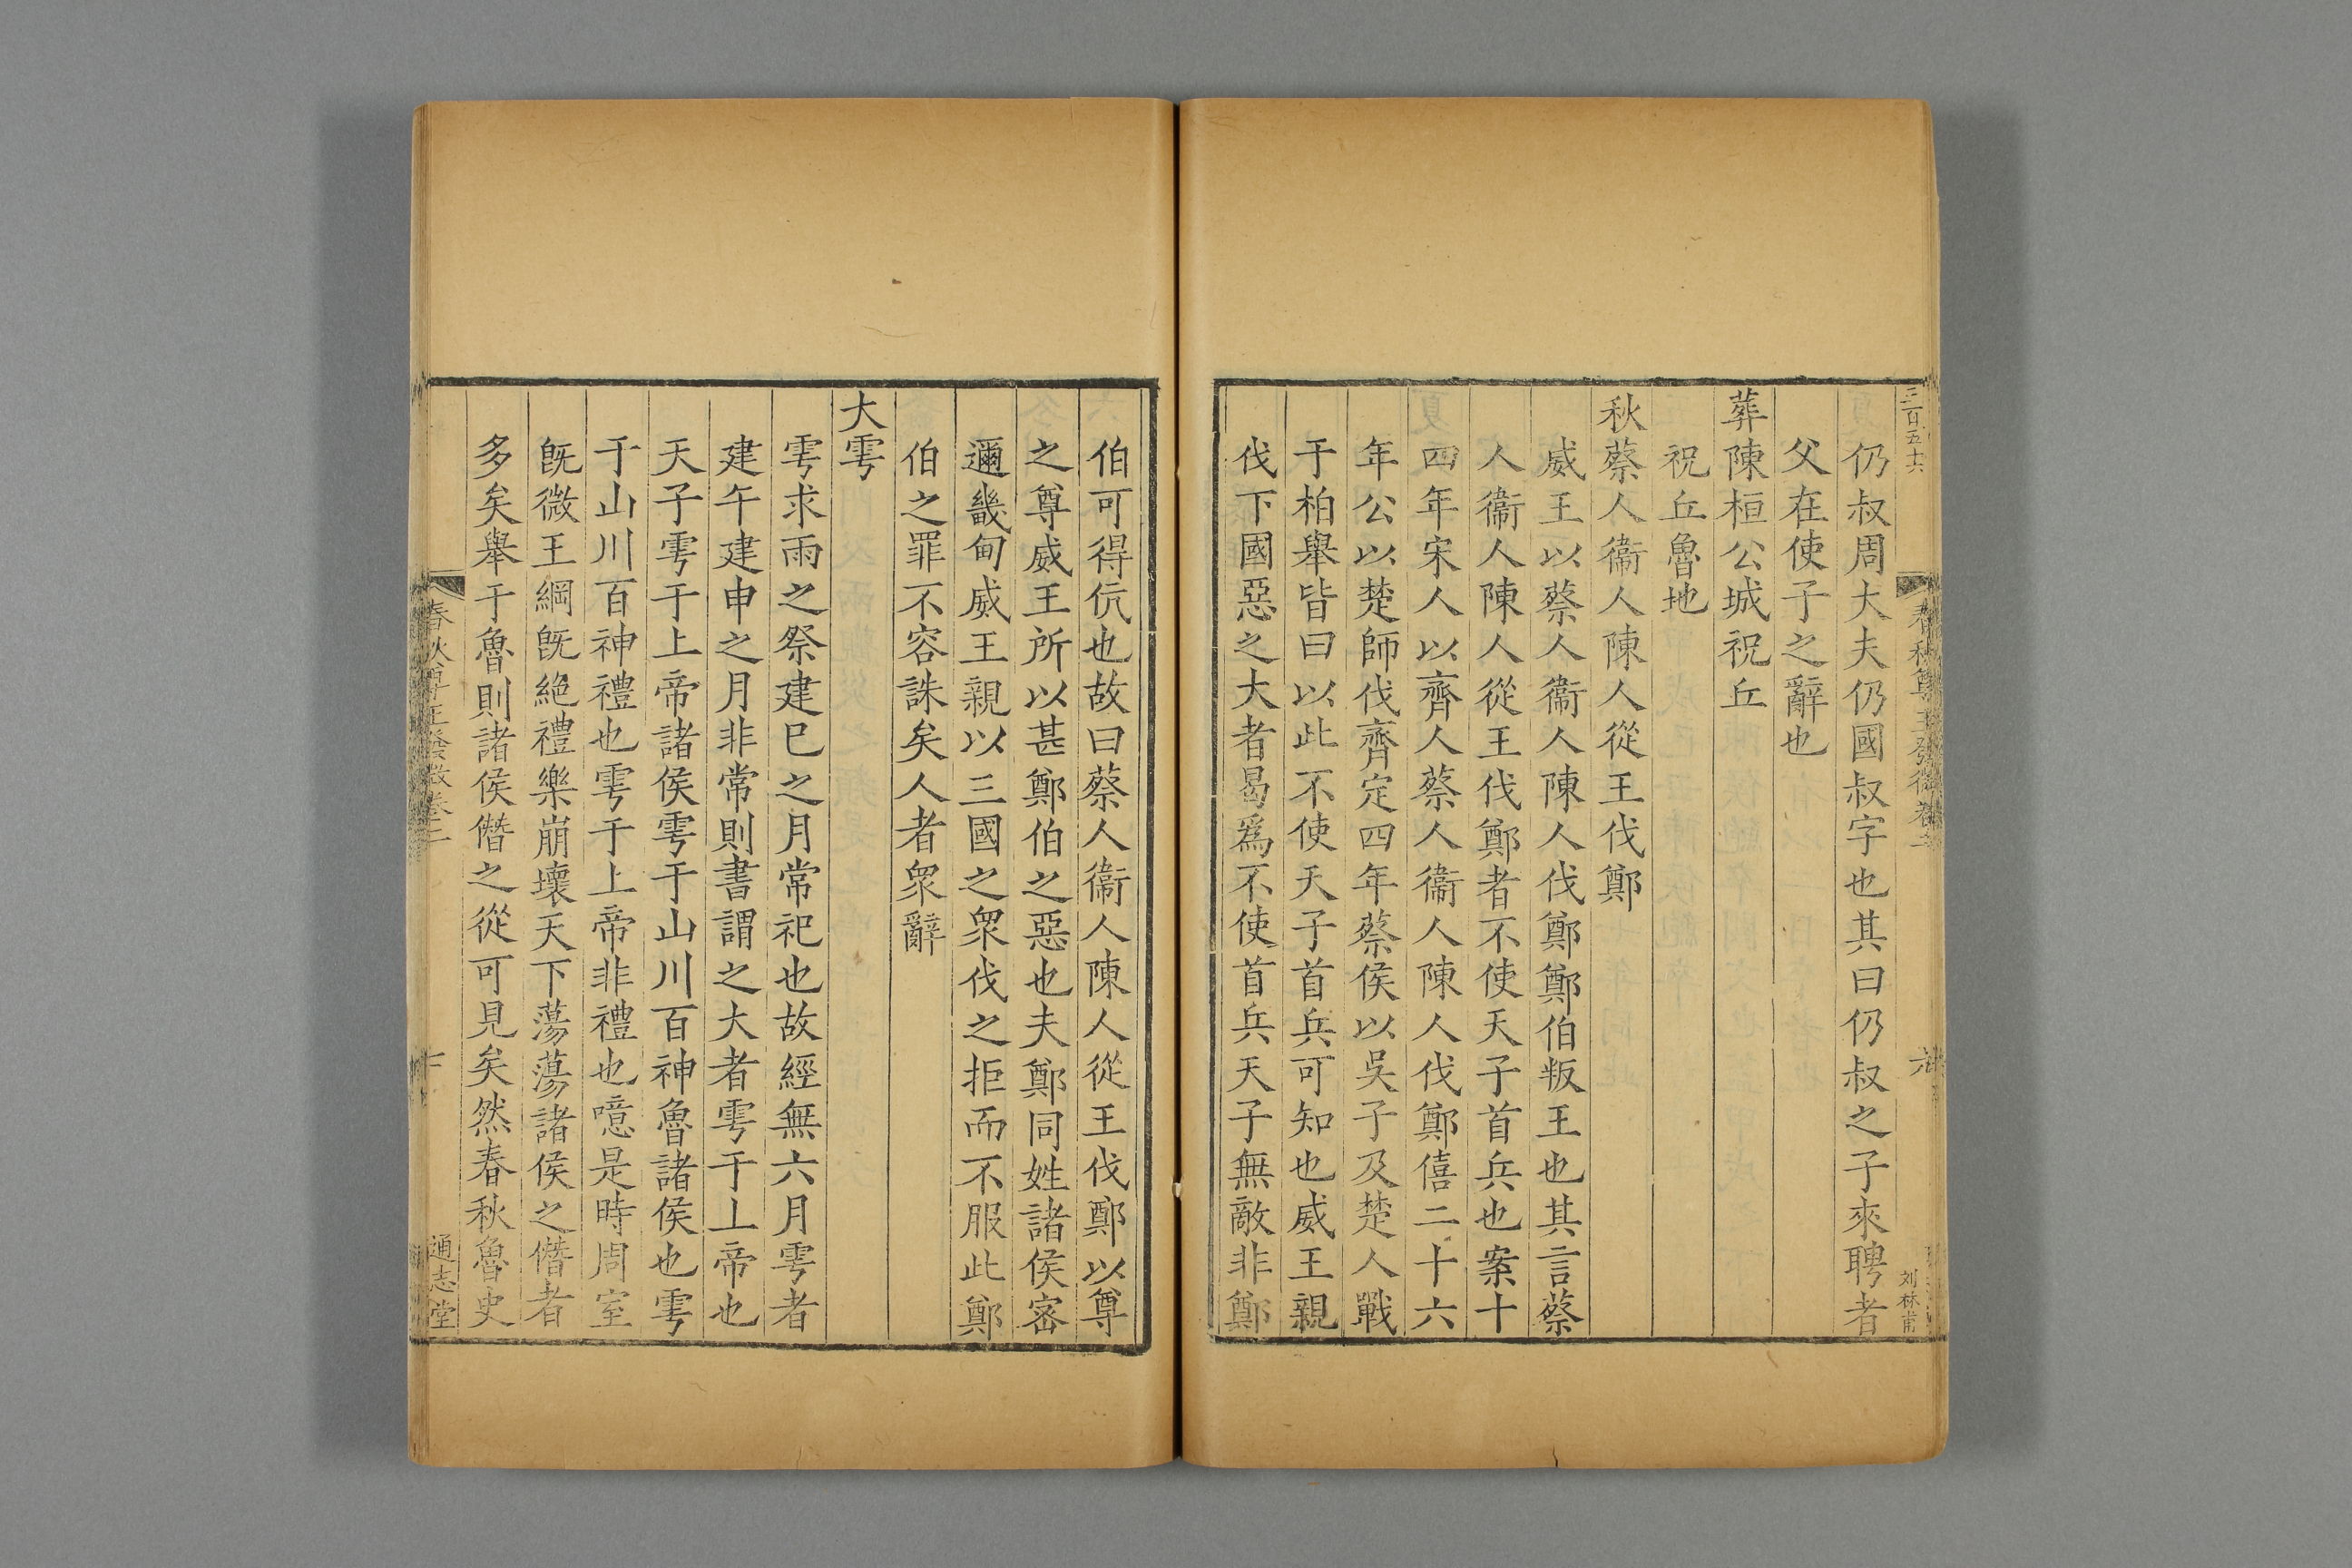 三百五十六
春秋尊王發微卷二
六
刘林甫
仍叔周大夫仍國叔字也其曰仍叔之子來聘者
父在使子之辭也
葬陳桓公城祝丘
祝丘魯地
秋蔡人衞人陳人從王伐鄭
威王以蔡人衞人陳人伐鄭鄭伯叛王也其言蔡
人衞人陳人從王伐鄭者不使天子首兵也案十
四年宋人以齊人蔡人衞人陳人伐鄭僖二十六
年公以楚師伐齊定四年蔡侯以吳子及楚人戰
于柏舉皆曰以此不使天子首兵可知也威王親
伐下國惡之大者曷爲不使首兵天子無敵非鄭
伯可得伉也故曰蔡人衞人陳人從王伐鄭以尊
之尊威王所以甚鄭伯之惡也夫鄭同姓諸侯密
邇畿甸威王親以三國之衆伐之拒而不服此鄭
伯之罪不容誅矣人者衆辭
大雩
雩求雨之祭建巳之月常祀也故經無六月雩者
建午建申之月非常則書謂之大者雩于上帝也
天子雩于上帝諸侯雩于山川百神魯諸侯也雩
于山川百神禮也雩于上帝非禮也噫是時周室
旣微王綱旣絶禮樂崩壞天下蕩蕩諸侯之僭者
多矣舉于魯則諸侯僭之從可見矣然春秋魯史
春秋尊王發微卷二
通志堂